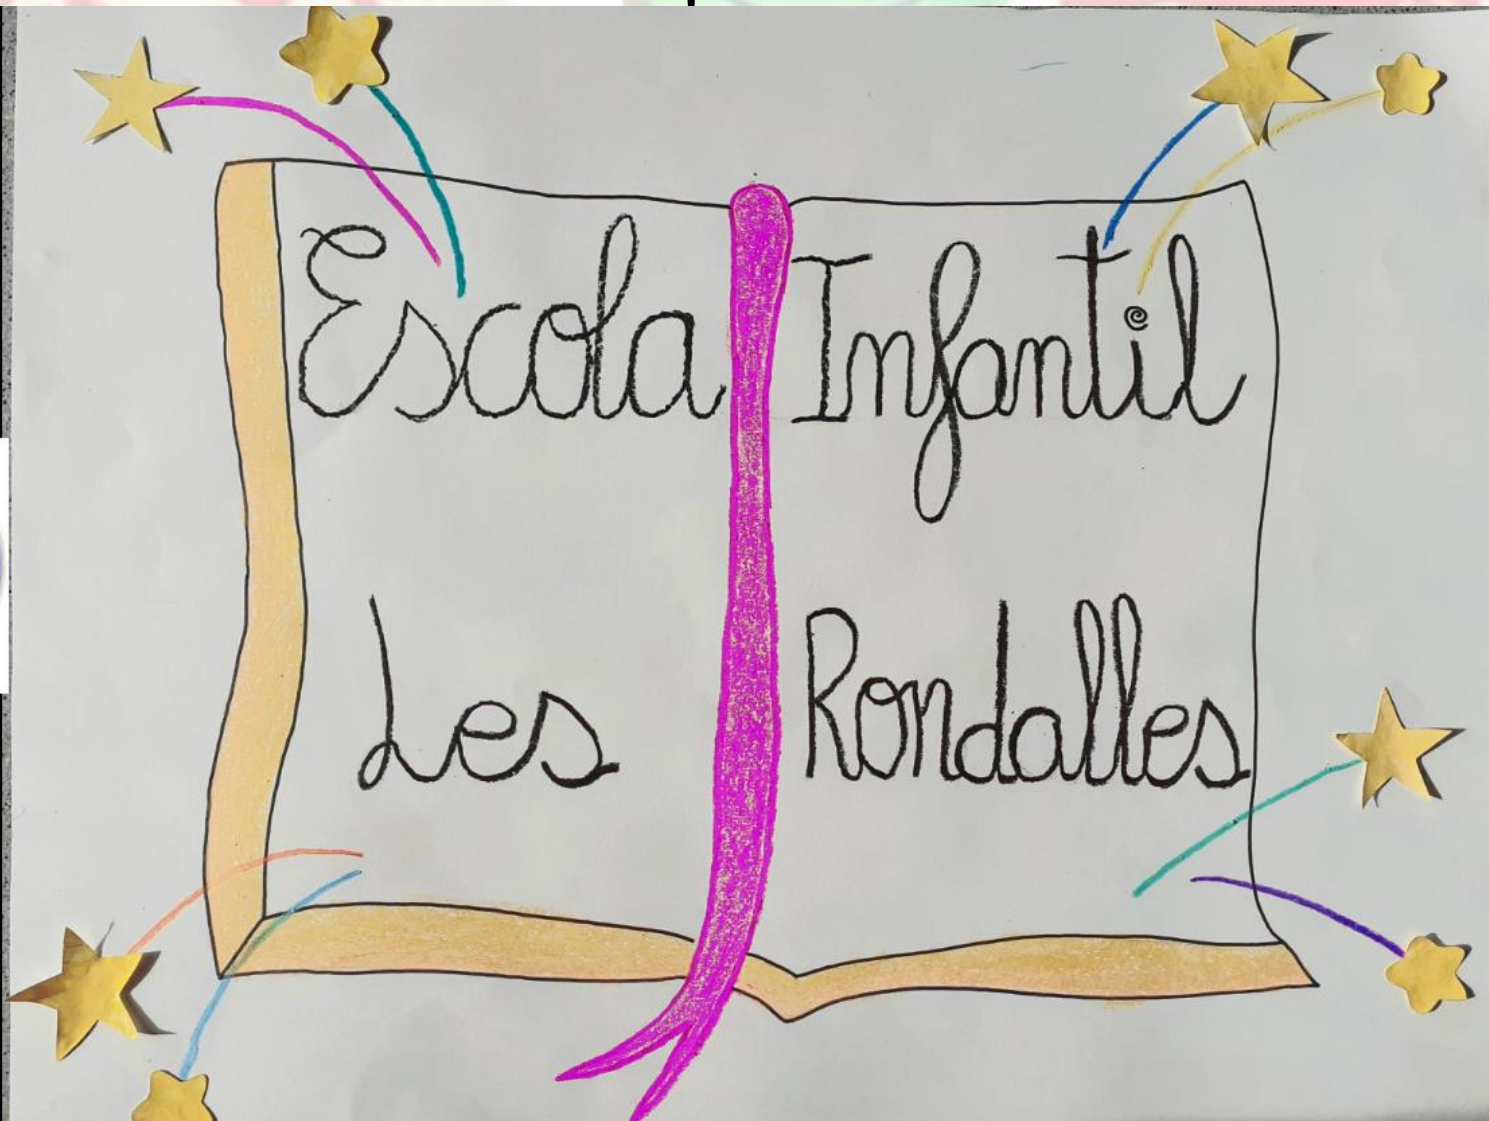 Escola Infantil
Les Rondalles